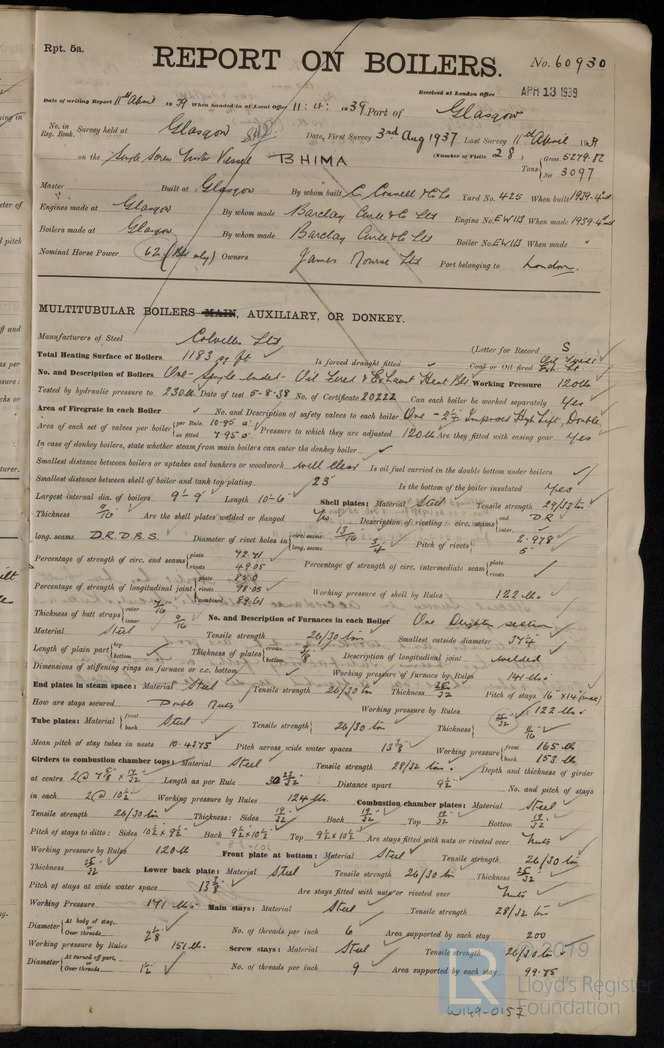 Rpt. 5a.
REPORT ON BOILERS.
No. 60930
Received at London Office APR 13 1939
Date of writing Report 11th April 1939 When handed in at Local Office 11:4:1939 Port of Glasgow
No. in Reg. Book. Survey held at Glasgow Date, First Survey 3rd Aug 1937 Last Survey 11th April 1939
on the Single Screw Motor Vessel BHIMA (Number of Visits 28) Tons Gross 5279.82 Net 3097
Master Built at Glasgow By whom built C. Connell & Co Yard No. 425 When built 1939-4
Engines made at Glasgow By whom made Barclay Curle & Co Ltd Engine No. When made 1939-4
Boilers made at Glasgow By whom made Barclay Curle & Co Ltd Boiler No. When made "
Nominal Horse Power 62 Owners James Nourse Ltd Port belonging to London.
MULTITUBULAR BOILERS MAIN, AUXILIARY, OR DONKEY.
Manufacturers of Steel Colvilles Ltd (Letter for Record S
Total Heating Surface of Boilers 1183 sq ft Is forced draught fitted Coal or Oil fired
No. and Description of Boilers One - Single ended - Oil Fired & Exhaust Heat Working Pressure 120 lb
Tested by hydraulic pressure to 230 lb Date of test 5-8-38 No. of Certificate 20222 Can each boiler be worked separately Yes
Area of Firegrate in each Boiler No. and Description of safety valves to each boiler One - 2¼ Improved High Lift, Double
Area of each set of valves per boiler per Rule 10.95 as fitted 7.95 Pressure to which they are adjusted 120 lb Are they fitted with easing gear Yes
In case of donkey boilers, state whether steam from main boilers can enter the donkey boiler
Smallest distance between boilers or uptakes and bunkers or woodwork well clear Is oil fuel carried in the double bottom under boilers
Smallest distance between shell of boiler and tank top plating 23" Is the bottom of the boiler insulated yes
Largest internal dia. of boilers 9'-9" Length 10-6 Shell plates: Material Steel Tensile strength 29/33 tons
Thickness 9/16 Are the shell plates welded or flanged No Description of riveting: circ. seams end D.R. inter.
long. seams D.R.D.B.S. Diameter of rivet holes in circ. seams 13/16 long. seams 3/4 Pitch of rivets 2.978 5"
Percentage of strength of circ. end seams plate 72.71 rivets 49.05 Percentage of strength of circ. intermediate seam plate rivets
Percentage of strength of longitudinal joint plate 85.0 rivets 98.05 combined 89.61 Working pressure of shell by Rules 122 lb
Thickness of butt straps outer 7/16 inner 9/16 No. and Description of Furnaces in each Boiler One Deighton section
Material Steel Tensile strength 26/30 tons Smallest outside diameter
Length of plain part top bottom Thickness of plates crown bottom Description of longitudinal joint welded
Dimensions of stiffening rings on furnace or c.c. bottom Working pressure of furnace by Rules 141 lbs
End plates in steam space: Material Steel Tensile strength 26/30 tons Thickness 25/32 Pitch of stays 16" x 14"
How are stays secured Double Nuts Working pressure by Rules 122 lbs
Tube plates: Material front back Steel Tensile strength 26/30 tons Thickness 25/32 11/16
Mean pitch of stay tubes in nests 10.4375 Pitch across wide water spaces 13⅜ Working pressure front 165 lb back 153 lb
Girders to combustion chamber tops: Material Steel Tensile strength 28/32 tons Depth and thickness of girder
at centre Length as per Rule Distance apart 9½ No. and pitch of stays
in each 2 @ 10½ Working pressure by Rules 124 lbs. Combustion chamber plates: Material Steel
Tensile strength 26/30 tons Thickness: Sides 19/32 Back 19/32 Top 19/32 Bottom 19/32
Pitch of stays to ditto: Sides 10½ x 9½ Back 9½ x 10½ Top 9½ x 10½ Are stays fitted with nuts or riveted over Nuts
Working pressure by Rules 120 lb Front plate at bottom: Material Steel Tensile strength 26/30 tons
Thickness 25/32 Lower back plate: Material Steel Tensile strength 26/30 tons Thickness 25/32
Pitch of stays at wide water space 13⅜ Are stays fitted with nuts or riveted over Nuts
Working Pressure 171 lbs Main stays: Material Steel Tensile strength 28/32 tons
Diameter At body of stay, or Over threads 2⅜ No. of threads per inch 6 Area supported by each stay 200
Working pressure by Rules 151 lbs. Screw stays: Material Steel Tensile strength 26/30 tons
Diameter At turned off part, or Over threads 1½ No. of threads per inch 9 Area supported by each stay 99.75
© 2019
LR Lloyd's Register Foundation
W149-0157